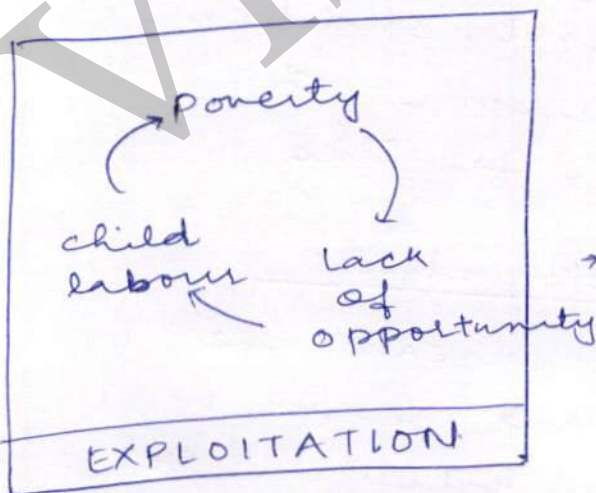 Poverty
child
labour
Lack
of
opportunity
EXPLOITATION